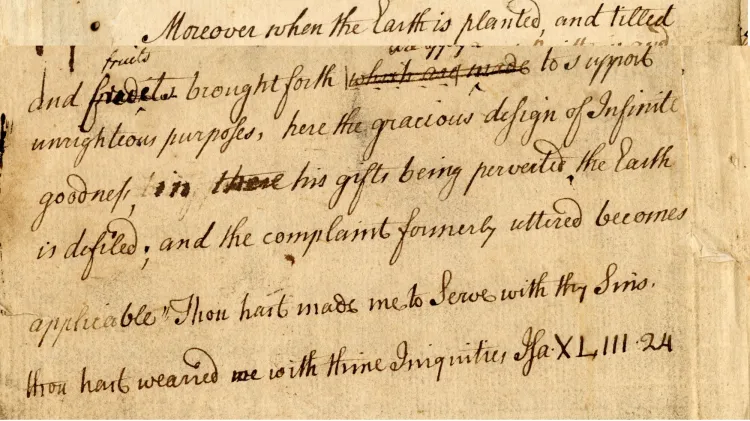 Moreover when the Earth is planted, and tilled
fruits
and brought forth which are made to support
unrighteous purposes, here the gracious design of Infinite
goodness, in these his gifts being perverted, the Earth
is defiled; and the complaint formerly uttered becomes
applicable "Thou hast made me to Serve with thy Sins.
thou hast wearied me with thine Iniquities, Isa. XLIII.24